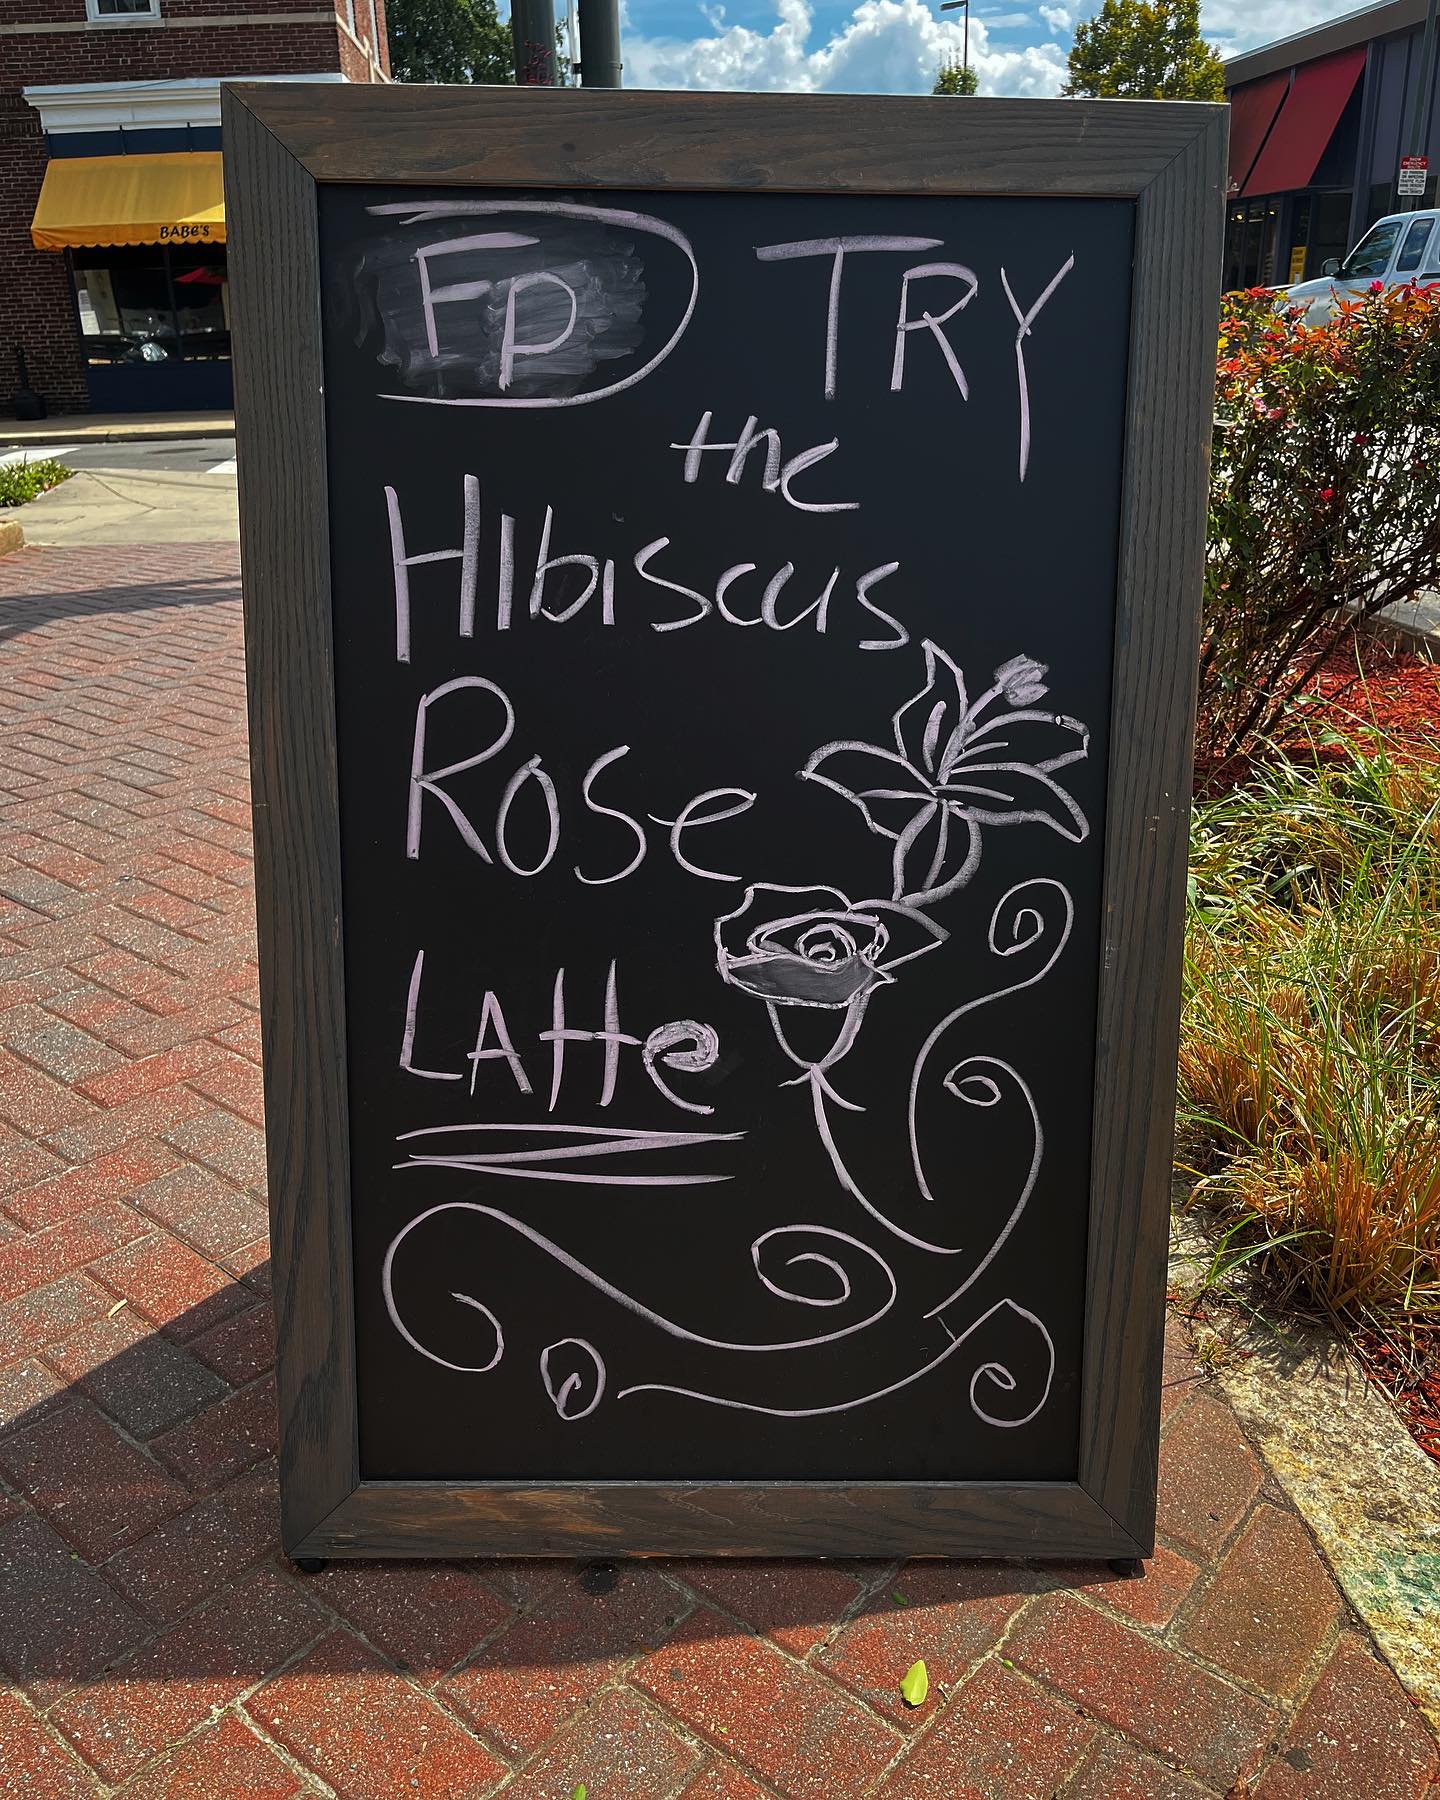 FP TRY
the
HIbiscus
Rose
LAtte
BABE'S